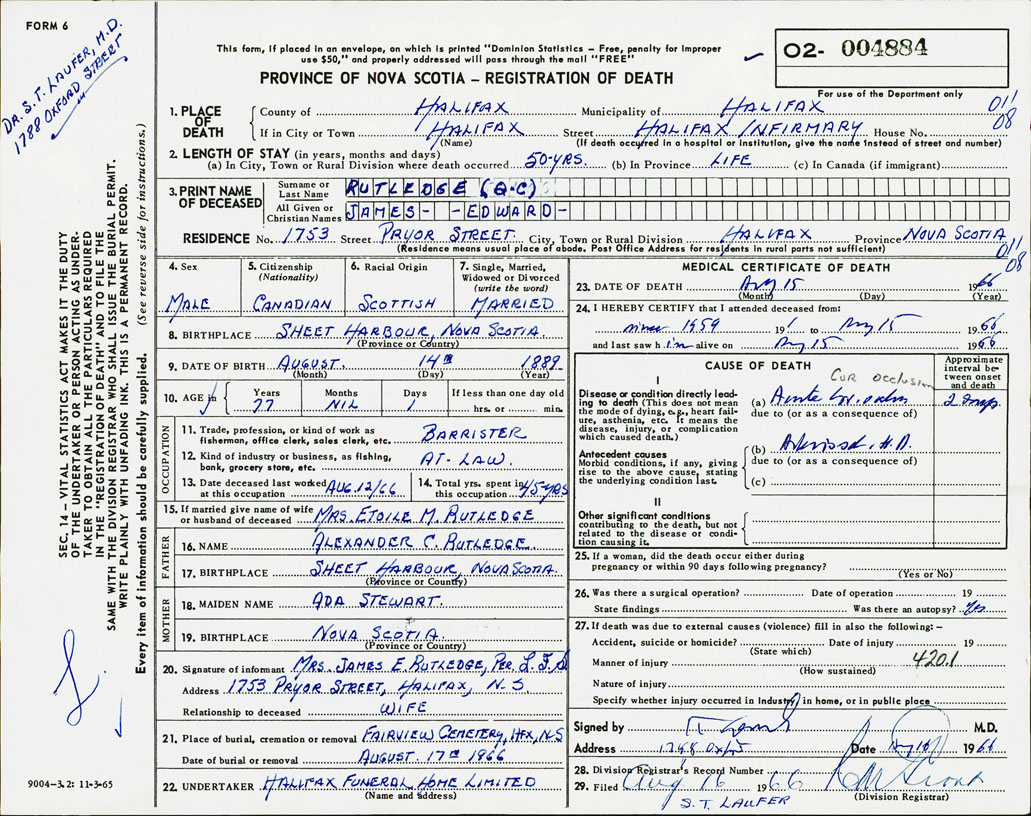 FORM 6
DR. S. T. LAUFER, M.D.
1788 OXFORD STREET
This form, if placed in an envelope, on which is printed "Dominion Statistics – Free, penalty for improper
use $50," and properly addressed will pass through the mail "FREE"
PROVINCE OF NOVA SCOTIA – REGISTRATION OF DEATH
O2- 004884
For use of the Department only
011
08
1. PLACE OF DEATH
County of HALIFAX Municipality of HALIFAX
If in City or Town HALIFAX Street HALIFAX INFIRMARY House No.
(Name) (If death occurred in a hospital or institution, give the name instead of street and number)
2. LENGTH OF STAY (in years, months and days)
(a) In City, Town or Rural Division where death occurred 50-YRS. (b) In Province LIFE (c) In Canada (if immigrant)
3. PRINT NAME OF DECEASED
Surname or Last Name RUTLEDGE (Q.C)
All Given or Christian Names JAMES- -EDWARD-
RESIDENCE No. 1753 Street PRYOR STREET. City, Town or Rural Division HALIFAX Province NOVA SCOTIA
(Residence means usual place of abode. Post Office Address for residents in rural parts not sufficient)
011
08
4. Sex MALE
5. Citizenship (Nationality) CANADIAN
6. Racial Origin SCOTTISH
7. Single, Married, Widowed or Divorced (write the word) MARRIED
8. BIRTHPLACE SHEET HARBOUR, NOVA SCOTIA.
(Province or Country)
9. DATE OF BIRTH AUGUST. 14TH 1889
(Month) (Day) (Year)
10. AGE Years 77 Months NIL Days 1 If less than one day old hrs. or min.
OCCUPATION
11. Trade, profession, or kind of work as fisherman, office clerk, sales clerk, etc. BARRISTER
12. Kind of industry or business, as fishing, bank, grocery store, etc. AT-LAW.
13. Date deceased last worked at this occupation AUG.12/66
14. Total yrs. spent in this occupation 45-YRS
15. If married give name of wife or husband of deceased MRS ETOILE M. RUTLEDGE
FATHER
16. NAME ALEXANDER C. RUTLEDGE.
17. BIRTHPLACE SHEET HARBOUR, NOVA SCOTIA.
(Province or Country)
MOTHER
18. MAIDEN NAME ADA STEWART.
19. BIRTHPLACE NOVA SCOTIA.
(Province or Country)
20. Signature of informant MRS. JAMES E. RUTLEDGE, PER L.F.S
Address 1753 PRYOR STREET, HALIFAX, N-S
Relationship to deceased WIFE
21. Place of burial, cremation or removal FAIRVIEW CEMETERY, HFX, N-S
Date of burial or removal AUGUST. 17TH 1966
22. UNDERTAKER HALIFAX FUNERAL HOME LIMITED
(Name and address)
MEDICAL CERTIFICATE OF DEATH
23. DATE OF DEATH Aug 15 1966
(Month) (Day) (Year)
24. I HEREBY CERTIFY that I attended deceased from:
since 1959 19 to Aug 15 1966
and last saw him alive on Aug 15 1966
CAUSE OF DEATH
Approximate interval between onset and death
I
Disease or condition directly leading to death (This does not mean the mode of dying, e.g., heart failure, asthenia, etc. It means the disease, injury, or complication which caused death.)
COR OCCLUSION
(a) Acute 2 days
due to (or as a consequence of)
Antecedent causes
Morbid conditions, if any, giving rise to the above cause, stating the underlying condition last.
(b) H.D.
due to (or as a consequence of)
(c)
II
Other significant conditions contributing to the death, but not related to the disease or condition causing it.
25. If a woman, did the death occur either during pregnancy or within 90 days following pregnancy?
(Yes or No)
26. Was there a surgical operation? Date of operation 19
State findings Was there an autopsy? Yes
27. If death was due to external causes (violence) fill in also the following: –
Accident, suicide or homicide? Date of injury 19
(State which)
Manner of injury 420.1
(How sustained)
Nature of injury
Specify whether injury occurred in industry, in home, or in public place
Signed by M.D.
Address 1788 Date Aug 1966
28. Division Registrar's Record Number
29. Filed Aug 16 1966
(Division Registrar)
S.T. LAUFER
SEC. 14 – VITAL STATISTICS ACT MAKES IT THE DUTY
OF THE UNDERTAKER OR PERSON ACTING AS UNDER-
TAKER TO OBTAIN ALL THE PARTICULARS REQUIRED
IN THE "REGISTRATION OF DEATH" AND TO FILE THE
SAME WITH THE DIVISION REGISTRAR WHO SHALL ISSUE THE BURIAL PERMIT.
WRITE PLAINLY WITH UNFADING INK. THIS IS A PERMANENT RECORD.
Every item of information should be carefully supplied. (See reverse side for instructions.)
9004-3.2: 11-3-65